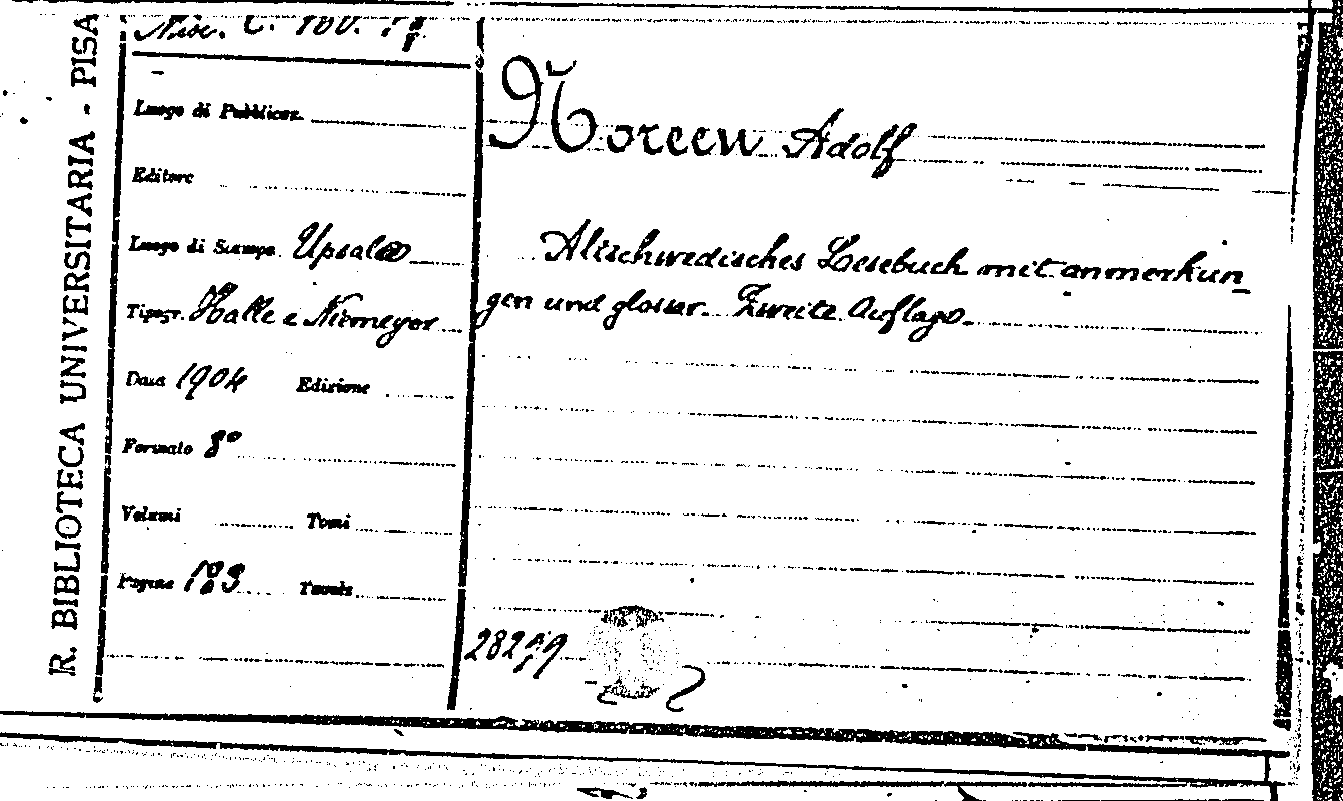 R. BIBLIOTECA UNIVERSITARIA - PISA
Misc. C. 160.
Luogo di Pubblicaz.
Editore
Luogo di Stampa Upsala
Tipogr. Halle e Niemeyer
Data 1904 Edizione
Formato 8°
Volumi Tomi
Pagine 183 Tavole
Noreen Adolf
Altschwedisches Lesebuch mit anmerkun
gen und glossar. Zweite Auflage.